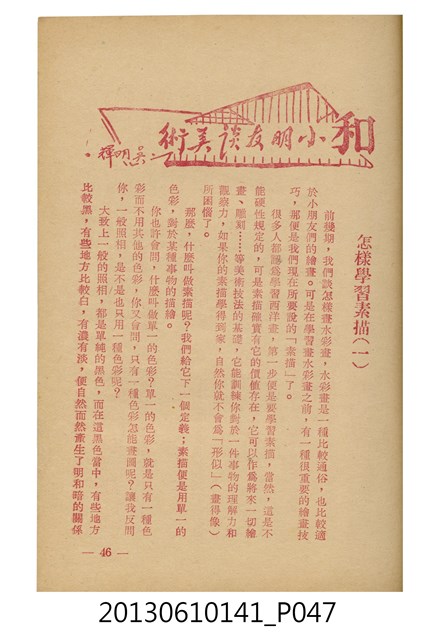 和小朋友談美術
吳明輝
怎樣學習素描(一)
前幾期,我們談怎樣畫水彩畫,水彩畫是一種比較通俗,也比較適
於小朋友們的繪畫。可是在學習畫水彩畫之前,有一種很重要的繪畫技
巧,那便是我們現在所要說的「素描」了。
很多人都認為學習西洋畫,第一步便是要學習素描,當然,這是不
能硬性規定的,可是素描確實有它的價值存在,它可以作為將來一切繪
畫、雕刻……等美術技法的基礎,它能訓練你對於一件事物的理解力和
觀察力,如果你的素描學得到家,自然你就不會為「形似」(畫得像)
所困惱了。
那麼,什麼叫做素描呢?我們給它下一個定義;素描便是用單一的
色彩,對於某種事物的描繪。
你也許會問,什麼叫做單一的色彩?單一的色彩,就是只有一種色
彩而不用其他的色彩,你又會問,只有一種色彩怎能畫圖呢?讓我反問
你,一般照相,是不是也只用一種色彩呢?
大致上一般的照相,都是單純的黑色,而在這黑色當中,有些地方
比較黑,有些地方比較白,有濃有淡,便自然而然產生了明和暗的關係
— 46 —
20130610141_P047